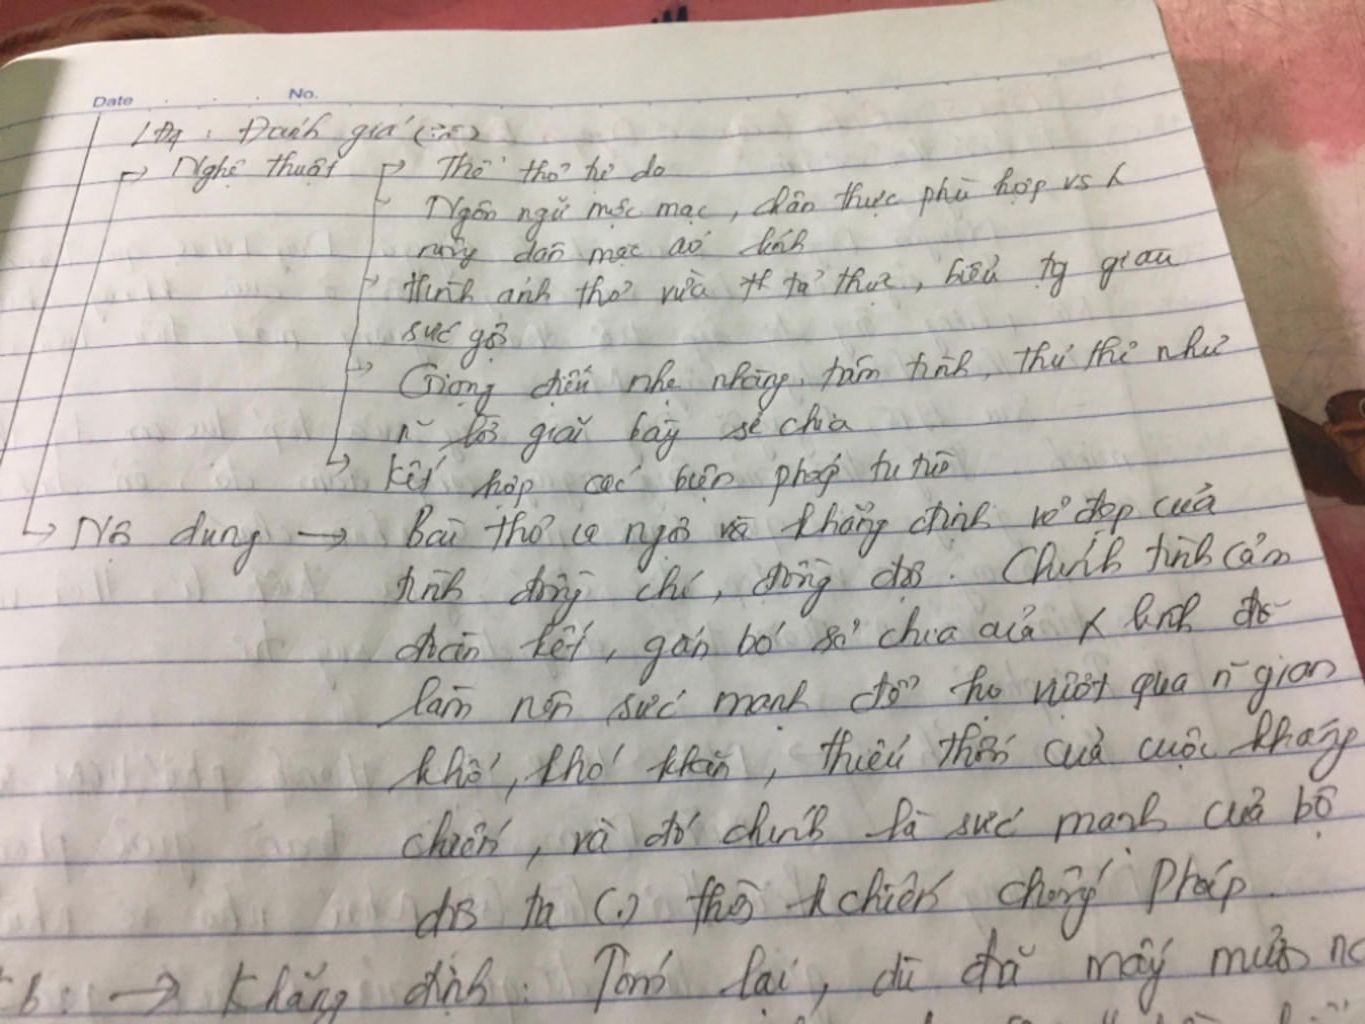 Date No.
LĐ4: Đánh giá
→ Nghệ thuật → Thể thơ tự do
Ngôn ngữ mộc mạc, chân thực phù hợp vs
dân mạc áo lính
Hình ảnh thơ vừa tả thực, biểu tg giàu
sức gợi
→ Giọng điệu nhẹ nhàng, tâm tình, thủ thỉ như
lời giãi bày sẻ chia
→ Kết hợp các biện pháp tu từ
→ Nộ dung → Bài thơ ca ngợi và khẳng định vẻ đẹp của
tình đồng chí, đồng đội. Chính tình cảm
đoàn kết, gắn bó sẻ chia của lính đã
làm nên sức mạnh để họ vượt qua n~ gian
khổ, khó khăn, thiếu thốn của cuộc kháng
chiến, và đó chính là sức mạnh của bộ
đội ta (.) thời kchiến chống Pháp.
Kb: → Khẳng định: Tóm lại, dù đã mấy mươi